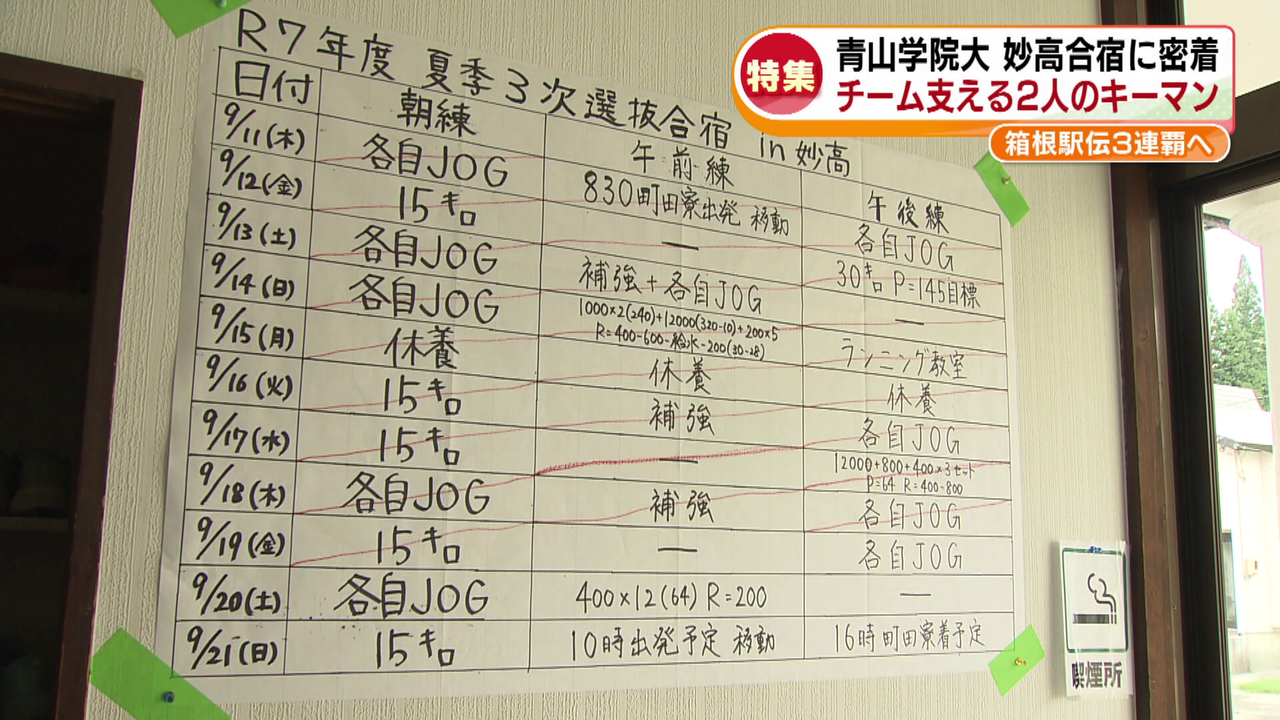 特集
青山学院大 妙高合宿に密着
チーム支える2人のキーマン
箱根駅伝3連覇へ
R7年度 夏季3次選抜合宿 in妙高
日付 朝練 午前練 午後練
9/11(木) 各自JOG 830町田寮出発 移動 各自JOG
9/12(金) 15キロ — 30キロ P=145目標
9/13(土) 各自JOG 補強+各自JOG —
9/14(日) 各自JOG 1000×2(240)+12000(320-10)+200×5 ランニング教室
R=400-600-給水-200(30-28)
9/15(月) 休養 休養 休養
9/16(火) 15キロ 補強 各自JOG
9/17(水) 15キロ — 12000+800+400×3セット
P=64 R=400-800
9/18(木) 各自JOG 補強 各自JOG
9/19(金) 15キロ — 各自JOG
9/20(土) 各自JOG 400×12(64) R=200 —
9/21(日) 15キロ 10時出発予定 移動 16時町田寮着予定
喫煙所